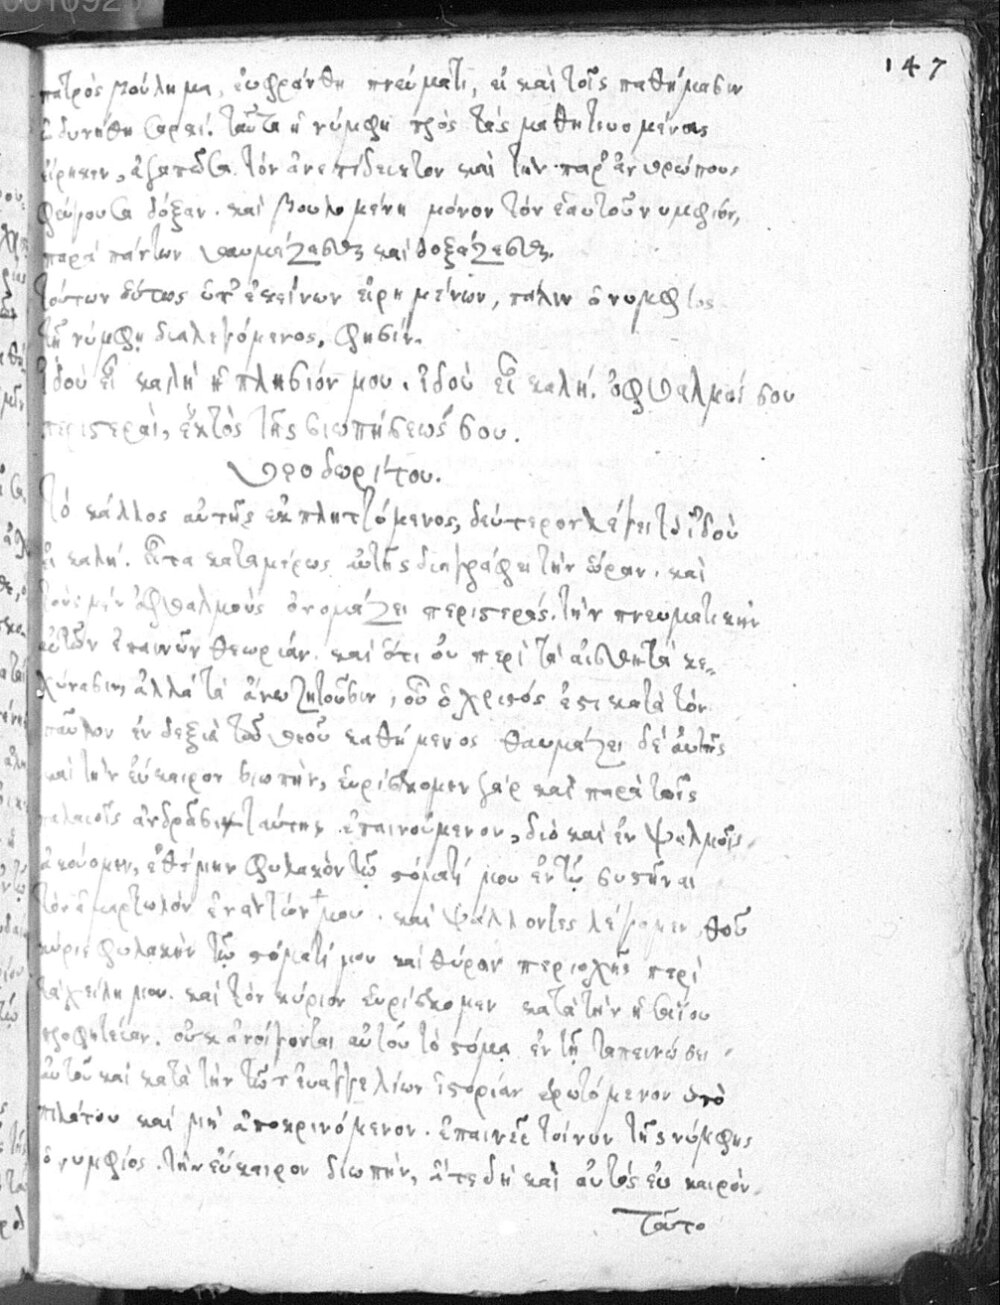 147
πατρὸς βούλημα, εὐφράνθη πνεύματι, εἰ καὶ τοῖς παθήμασιν
ὠδυνήθη σαρκί. ταῦτα ἡ νύμφη πρὸς τὰς μαθητευομένας
εἴρηκεν, ἀγαπῶσα τὸν ἀνεπίδεικτον καὶ τὴν παρ' ἀνθρώποις
φεύγουσα δόξαν. καὶ βουλομένη μόνον τὸν ἑαυτοῦ νυμφίον,
παρὰ πάντων θαυμάζεσθαι καὶ δοξάζεσθαι.
τούτων οὕτως ὑπ' ἐκείνων εἰρημένων, πάλιν ὁ νυμφίος
τῇ νύμφῃ διαλεγόμενος, φησίν.
ἰδοὺ εἶ καλὴ ἡ πλησίον μου. ἰδοὺ εἶ καλή. ὀφθαλμοί σου
περιστεραὶ, ἐκτὸς τῆς σιωπήσεώς σου.
θεοδωρίτου.
τὸ κάλλος αὐτῆς ἐκπληττόμενος, δεύτερον λέγει τὸ ἰδοὺ
εἶ καλή. εἶτα καταμέρως αὐτῆς διαγράφει τὴν ὥραν. καὶ
τοὺς μὲν ὀφθαλμοὺς ὀνομάζει περιστεράς. τὴν πνευματικὴν
αὐτῶν ἐπαινῶν θεωρίαν. καὶ ὅτι οὐ περὶ τὰ αἰσθητὰ κε-
χύνασιν, ἀλλὰ τὰ ἄνω ζητοῦσιν, οὗ ὁ χριστός ἐστι κατὰ τὸν
παῦλον ἐν δεξιᾷ τοῦ θεοῦ καθήμενος θαυμάζει δὲ αὐτῆς
καὶ τὴν εὔκαιρον σιωπὴν, εὑρίσκομεν γὰρ καὶ παρὰ τοῖς
παλαιοῖς ἀνδράσιν ταύτην ἐπαινούμενον, διὸ καὶ ἐν ψαλμοῖς
ἀκούομεν, ἐθέμην φυλακὸν τῷ στόματί μου ἐν τῷ συστῆναι
τὸν ἁμαρτωλὸν ἐναντίον μου. καὶ ψάλλοντες λέγομεν, θοῦ
κύριε φυλακὴν τῷ στόματί μου καὶ θύραν περιοχῆς περὶ
τὰ χείλη μου. καὶ τὸν κύριον εὑρίσκομεν κατὰ τὴν ἡσαΐου
προφητείαν. οὐκ ἀνοίγονται αὐτοῦ τὸ στόμα ἐν τῇ ταπεινώσει
αὐτοῦ καὶ κατὰ τὴν τῶν εὐαγγελίων ἱστορίαν ἐρωτόμενον ὑπὸ
πιλάτου καὶ μὴ ἀποκρινόμενον. ἐπαινεῖ τοίνυν τῆς νύμφης
ὁ νυμφίος. τὴν εὔκαιρον σιωπὴν, ἅτε δὴ καὶ αὐτὸς εὖ καιρὸν
τοῦτο